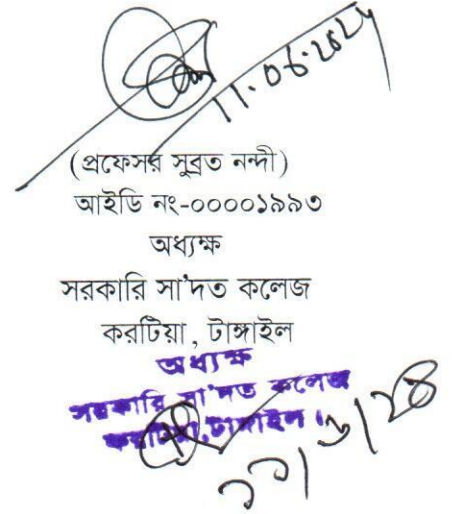 11.06.2024
(প্রফেসর সুব্রত নন্দী)
আইডি নং-০০০০১৯৯৩
অধ্যক্ষ
সরকারি সা'দত কলেজ
করটিয়া, টাঙ্গাইল
অধ্যক্ষ
সরকারি সা'দত কলেজ
করটিয়া, টাঙ্গাইল।
১১/৬/২৪